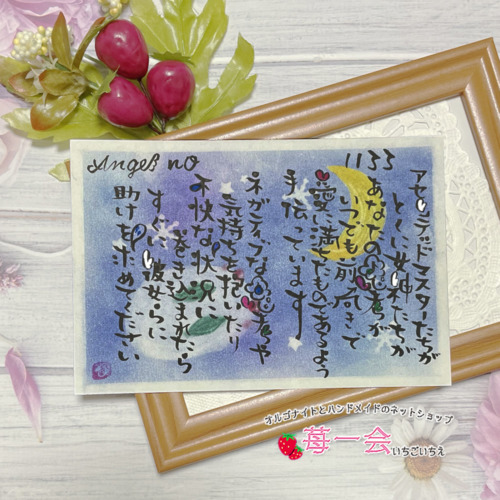 Angel no
1133
アセンデッドマスターたちが
とくに女神たちが
あなたの思考が
いつでも前向きで
愛に満ちたものであるよう
手伝っています
ネガティブな思考や
気持ちを抱いたり
不快な状況に
巻き込まれたら
すぐに彼女らに
助けを求めてください
オルゴナイトとハンドメイドのネットショップ
苺一会
いちごいちえ